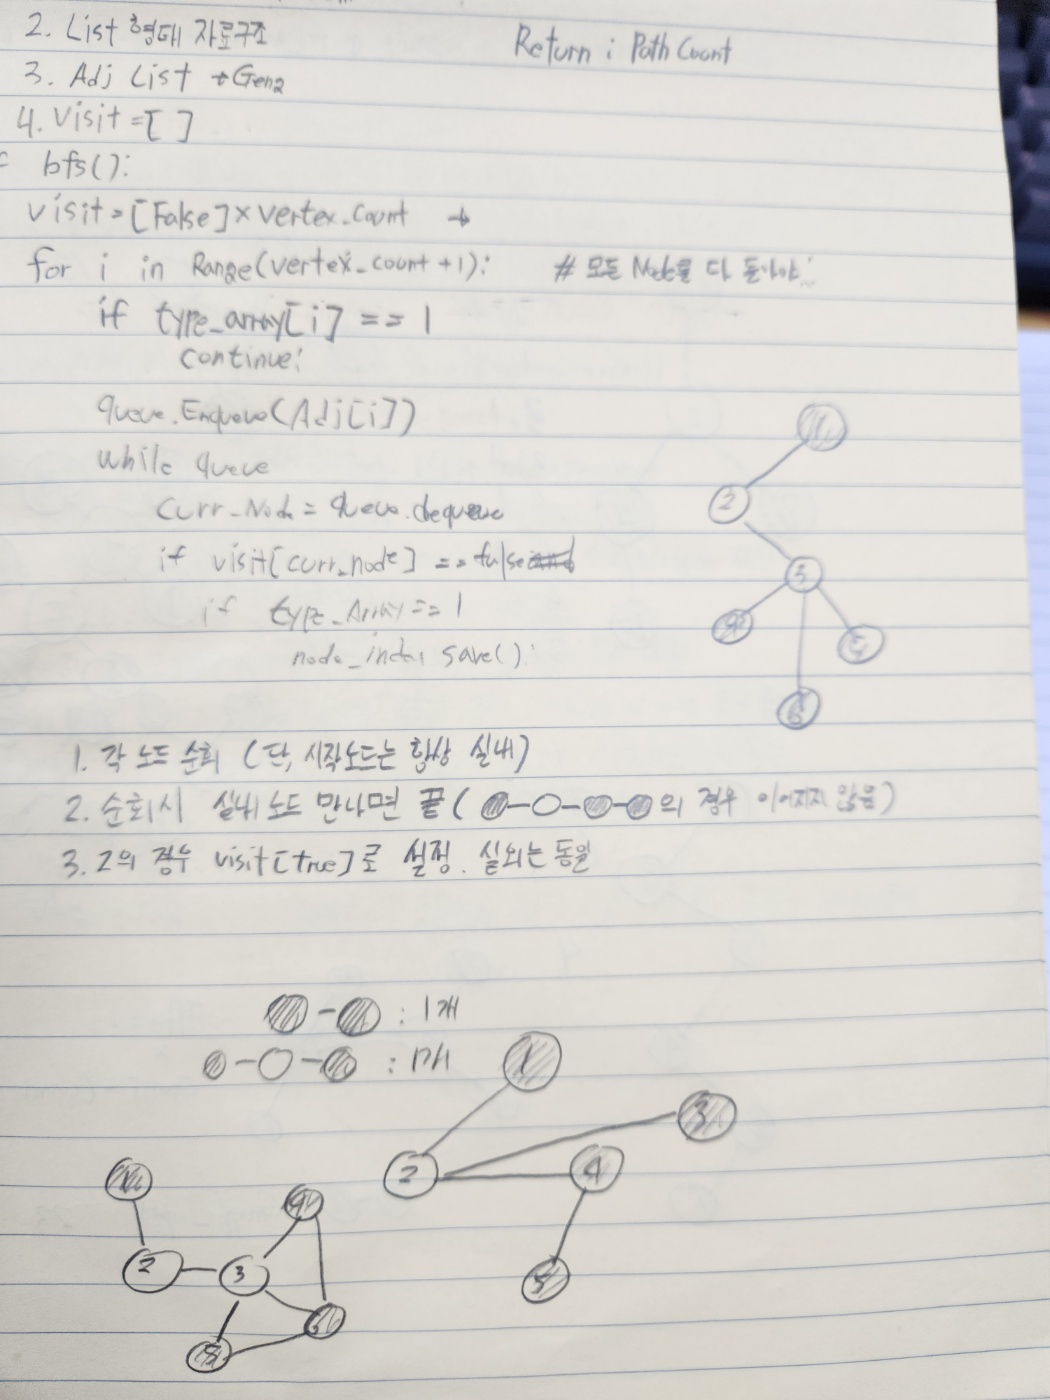 2. List 형태 자료구조
Return : Path Count
3. Adj List
4. Visit = [ ]
bfs():
visit = [False] × vertex_count →
for i in Range(vertex_count +1): # 모든 Node를 다 돌아야..
if type_array[i] == 1
continue;
queue.Enqueue(Adj[i])
while queue
curr_Node = queue.dequeue
if visit[curr_node] == false
if type_Array == 1
node_index save():
1
2
3
4
5
6
1. 각 노드 순회 (단, 시작노드는 항상 실내)
2. 순회시 실내 노드 만나면 끝 ( 의 경우 이어지지 않음)
3. 2의 경우 visit[true]로 설정. 실외는 동일
: 1개
: 1개
1
3
2
4
5
1
4
2
3
5